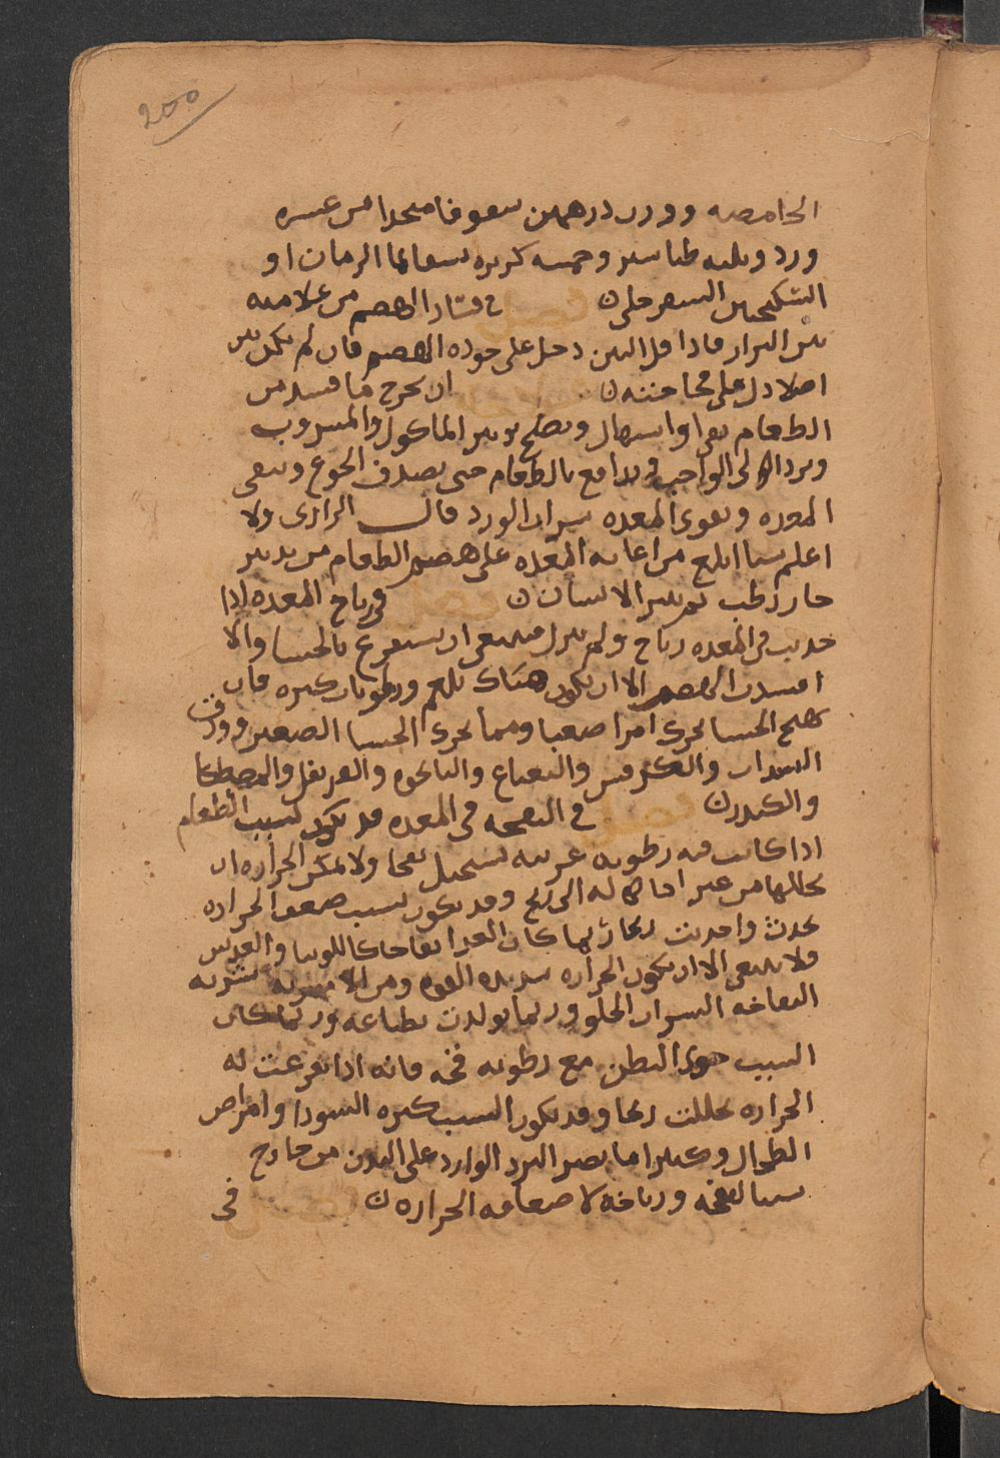 200
الحامضه ووزن درهمين سفوفا متخذا من عشره
ورد وثلثه طباشير وخمسه كزبره يسقا بما الرمان او
السكنجبين السفرجلى فصل فى فساد الهضم من علامته
نتن البراز فاذا قل النتن دحل على جوده الهضم فان لم يكن نتن
اصلا دل على فجاجته ان يخرج ما فسد من
الطعام بقى او اسهال ويصلح تدبير الماكول والمشروب
ويرد الى الواجب ويدافع بالطعام حتى يصدق الجوع وينقى
المعده ويقوى المعده بشراب الورد قال الرازى ولا
اعلم شيا ابلغ من اعانه المعده على هضم الطعام من بدن
حار رطب الانسان فصل فى رياح المعده اذا
حدثت فى المعده رياح ولم تنزل فينبغى ان يستفرغ بالجشا والا
افسدت الهضم الا ان يكون هناك بلغم ورطوبات كثيره فان
الجشا يحرك امرا صعبا ومما يحرك الجشا الصعتر وورق
السداب والكرفس والنعناع والنانخوه والقرنفل والمصطكا
والكندر فصل فى النفخه فى المعده قد يكون لسبب الطعام
اذا كانت فيه رطوبه غريبه تستحيل نفخا ولا يمكن الحراره ان
تحللها من غير احالها له الى ريح وقد يكون بسبب ضعف الحراره
بحدث واحدثت ريحا ربما كان الغدا نفاخا كاللوبيا والعدس
فلا ينبغى الا ان يكون الحراره شديده القوه ومن الاشربه
النفاخه الشراب الحلو وربما تولدت نطباعه وربما كان
السبب خوا البطن مع رطوبه فجه فانه اذا تفرغت له
الحراره تحللت ريحا وقد يكون السبب كثره السودا وامراض
الطحال وكثيرا ما يصير البرد الوارد على البدن من خارج
سببا لنفخه ورياحه لاضعافه الحراره فصل فى